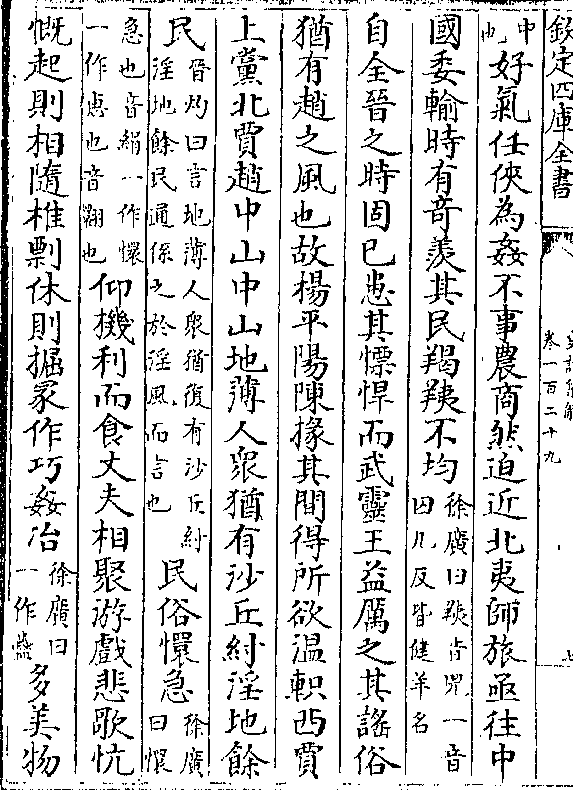 欽定四庫全書
卷一百二十九
中也好氣任俠為姦不事農商然迫近北夷師旅亟往中
國委輸時有竒羨其民羯羠不均徐廣曰羠音兕一音四几反皆健羊名
自全晉之時固已患其慓悍而武靈王益厲之其謠俗
猶有趙之風也故楊平陽陳掾其間得所欲温軹西賈
上黨北賈趙中山中山地薄人衆猶有沙丘紂淫地餘
民晉灼曰言地薄人衆猶復有沙丘紂淫地餘民通係之於淫風而言也民俗懁急徐廣曰懁
急也音絹一作懁一作惠也音翾也仰機利而食丈夫相聚游戲悲歌忼
慨起則相隨椎剽休則掘冢作巧姦冶徐廣曰一作蠱多美物